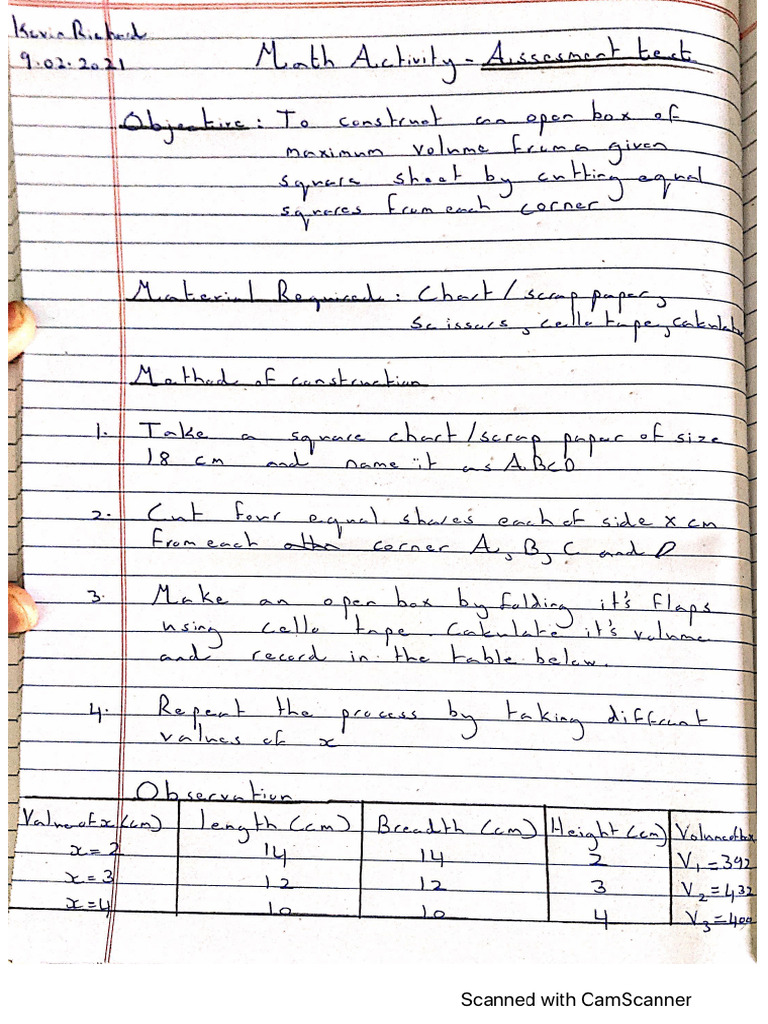 Kevin Richard
9.02.2021
Math Activity - Assesment test
Objective: To construct an open box of
maximum volume from a given
square sheet by cutting equal
squares from each corner
Material Required: Chart / scrap paper,
Scissors, cello tape, calculator
Method of construction
1. Take a square chart / scrap paper of size
18 cm and name it as ABCD
2. Cut four equal shares each of side x cm
from each corner A, B, C and D
3. Make an open box by folding it's flaps
using cello tape. Calculate it's volume
and record in the table below.
4. Repeat the process by taking different
values of x
Observation
Value of x (cm) length (cm) Breadth (cm) Height (cm) Volume of box
x = 2 14 14 2 V1 = 392
x = 3 12 12 3 V2 = 432
x = 4 10 10 4 V3 = 400
Scanned with CamScanner